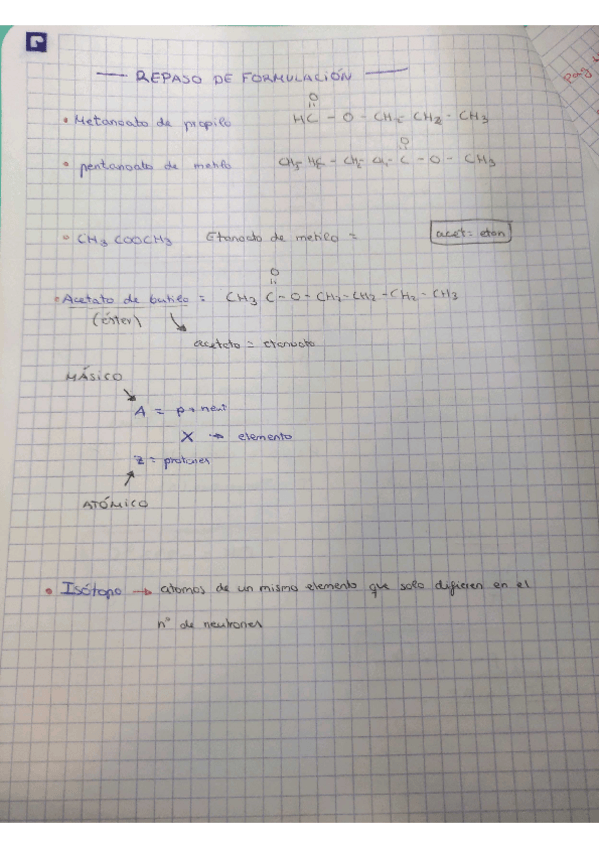 REPASO DE FORMULACIÓN
O
• Metanoato de propilo HC - O - CH2 - CH2 - CH3
O
• pentanoato de metilo CH3 - HC - CH2 - CH2 - C - O - CH3
• CH3 COOCH3 Etanoato de metilo = acet = etan
O
• Acetato de butilo = CH3 C - O - CH2 - CH2 - CH2 - CH3
(éster)
acetato = etanoato
MÁSICO
A = p + neut
X → elemento
Z = protones
ATÓMICO
• Isótopo → atomos de un mismo elemento que solo difieren en el
nº de neutrones